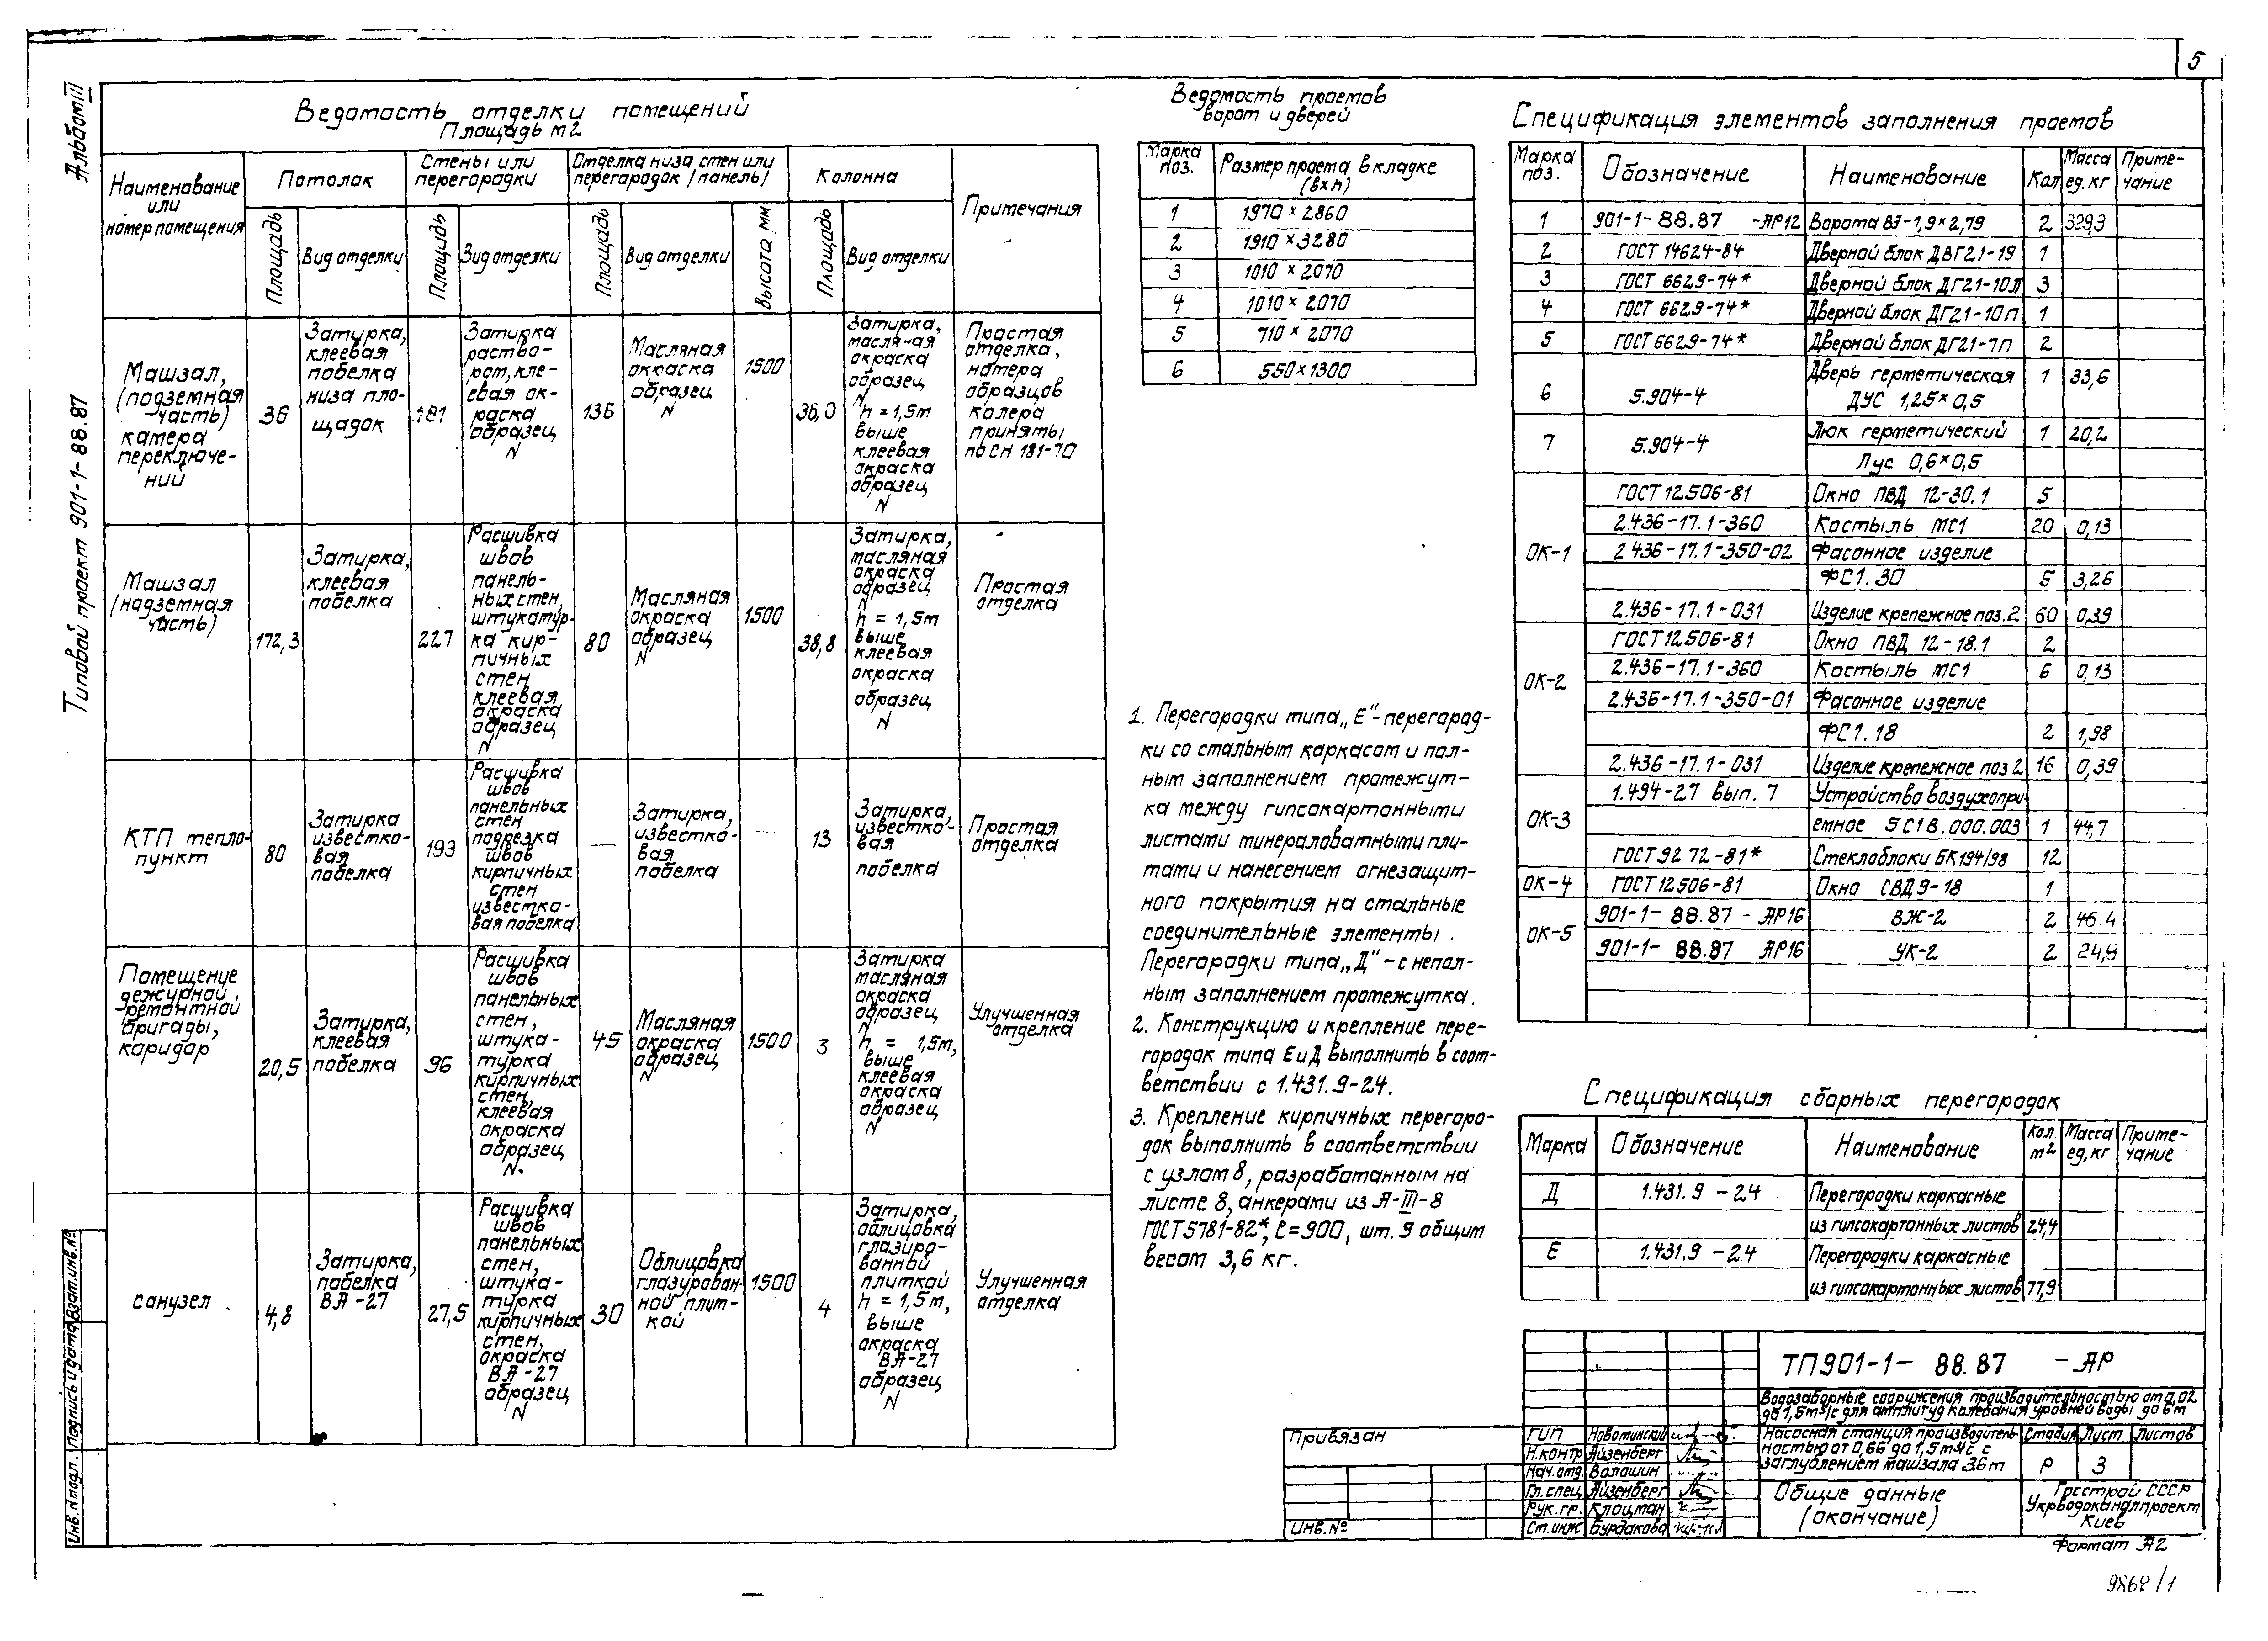 5
Альбом III
Типовой проект 901-1-88.87
Ведомость отделки помещений
Площадь м2
Наименование или номер помещения
Потолок
Стены или перегородки
Отделка низа стен или перегородок (панель)
Колонна
Примечания
Площадь
Вид отделки
Площадь
Вид отделки
Площадь
Вид отделки
Высота, мм
Площадь
Вид отделки
Машзал, (подземная часть) камера переключений
36
Затирка, клеевая побелка низа площадок
181
Затирка раствором, клеевая окраска образец N
136
Масляная окраска образец N
1500
36,0
Затирка, масляная окраска образец N h = 1,5м выше клеевая окраска образец N
Простая отделка, номера образцов колера приняты по СН 181-70
Машзал (надземная часть)
172,3
Затирка, клеевая побелка
227
Расшивка швов панельных стен, штукатурка кирпичных стен клеевая окраска образец N
80
Масляная окраска образец N
1500
38,8
Затирка, масляная окраска образец N h = 1,5м выше клеевая окраска образец N
Простая отделка
КТП теплопункт
80
Затирка известковая побелка
193
Расшивка швов панельных стен подрезка швов кирпичных стен известковая побелка
—
Затирка, известковая побелка
—
13
Затирка, известковая побелка
Простая отделка
Помещение дежурной ремонтной бригады, коридор
20,5
Затирка, клеевая побелка
96
Расшивка швов панельных стен, штукатурка кирпичных стен, клеевая окраска образец N.
45
Масляная окраска образец N
1500
3
Затирка масляная окраска образец N h = 1,5м, выше клеевая окраска образец N
Улучшенная отделка
санузел
4,8
Затирка, побелка ВА-27
27,5
Расшивка швов панельных стен, штукатурка кирпичных стен, окраска ВА-27 образец N
30
Облицовка глазурованной плиткой
1500
4
Затирка, облицовка глазированной плиткой h = 1,5м, выше окраска ВА-27 образец N
Улучшенная отделка
Ведомость проемов
ворот и дверей
Марка поз.
Размер проема в кладке (в×h)
1 1970×2860
2 1910×3280
3 1010×2070
4 1010×2070
5 710×2070
6 550×1300
1. Перегородки типа „Е"-перегород-
ки со стальным каркасом и пол-
ным заполнением промежут-
ка между гипсокартонными
листами минераловатными пли-
тами и нанесением огнезащит-
ного покрытия на стальные
соединительные элементы.
Перегородки типа „Д"-с непол-
ным заполнением промежутка.
2. Конструкцию и крепление пере-
городок типа Е и Д выполнить в соот-
ветствии с 1.431.9-24.
3. Крепление кирпичных перегоро-
док выполнить в соответствии
с узлом 8, разработанным на
листе 8, анкерами из А-III-8
ГОСТ 5781-82*, ℓ=900, шт. 9 общим
весом 3,6 кг.
Спецификация элементов заполнения проемов
Марка поз.
Обозначение
Наименование
Кол
Масса ед. кг
Примечание
1 901-1-88.87 -АР12 Ворота ВЗ-1,9×2,79 2 329,3
2 ГОСТ 14624-84 Дверной блок ДВГ21-19 1
3 ГОСТ 6629-74* Дверной блок ДГ21-10Л 3
4 ГОСТ 6629-74* Дверной блок ДГ21-10П 1
5 ГОСТ 6629-74* Дверной блок ДГ21-7П 2
6 5.904-4 Дверь герметическая 1 33,6
ДУС 1,25×0,5
7 5.904-4 Люк герметический 1 20,2
Лус 0,6×0,5
ОК-1
ГОСТ 12506-81 Окно ПВД 12-30.1 5
2.436-17.1-360 Костыль МС1 20 0,13
2.436-17.1-350-02 Фасонное изделие
ФС1.30 5 3,26
2.436-17.1-031 Изделие крепежное поз.2 60 0,39
ОК-2
ГОСТ 12506-81 Окно ПВД 12-18.1 2
2.436-17.1-360 Костыль МС1 6 0,13
2.436-17.1-350-01 Фасонное изделие
ФС1.18 2 1,98
2.436-17.1-031 Изделие крепежное поз.2 16 0,39
ОК-3
1.494-27 вып. 7 Устройство воздухопри-
емное 5С1В.000.003 1 44,7
ГОСТ 9272-81* Стеклоблоки БК194/98 12
ОК-4 ГОСТ 12506-81 Окно СВД9-18 1
ОК-5
901-1-88.87 - АР16 ВЖ-2 2 46.4
901-1-88.87 АР16 УК-2 2 24,9
Спецификация сборных перегородок
Марка
Обозначение
Наименование
Кол м2
Масса ед, кг
Примечание
Д 1.431.9-24 Перегородки каркасные
из гипсокартонных листов 24,4
Е 1.431.9-24 Перегородки каркасные
из гипсокартонных листов 77,9
ТП901-1-88.87 -АР
Водозаборные сооружения производительностью от 0,02
до 1,5м³/с для амплитуд колебания уровней воды до 6м
Насосная станция производитель-
ностью от 0,66 до 1,5м³/с с
заглублением машзала 3.6м
Стадия Лист Листов
Р 3
Общие данные
(окончание)
Госстрой СССР
Укрводоканалпроект
Киев
ГИП Новоминский
Н.контр Айзенберг
Нач.отд. Волошин
Гл.спец Айзенберг
Рук.гр. Клоцман
Ст.инж Бурдакова
Привязан
Инв.№
Инв.№ подл.
Подпись и дата
Взам.инв.№
Формат А2
9868/1